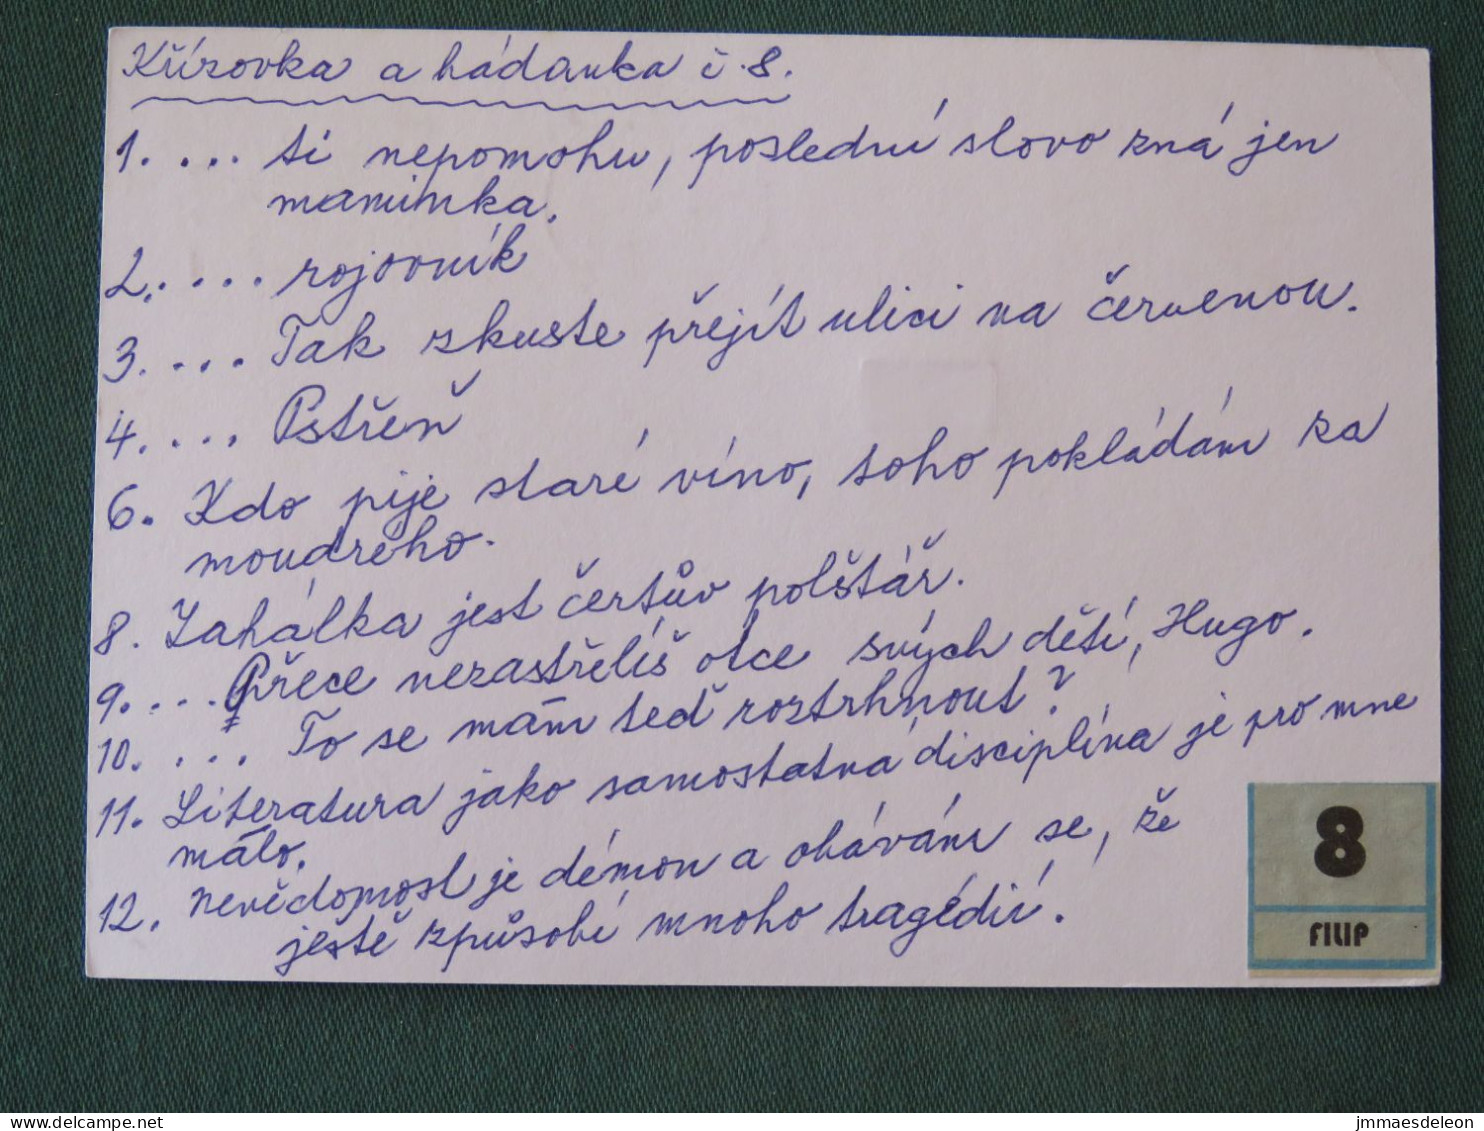 Křížovka a hádanka č. 8.
1. ... ti nepomohu, poslední slovo zná jen
maminka.
2. ... rojovník
3. ... Tak zkuste přejít ulici na červenou.
4. ... Pstřeň
6. Kdo pije staré víno, toho pokládám za
moudrého.
8. Zahálka jest čertův polštář.
9. ... Přece nezastřelíš otce svých dětí, Hugo.
10. ... To se mám teď roztrhnout?
11. Literatura jako samostatná disciplína je pro mne
málo.
12. Nevědomost je démon a obávám se, že
ještě způsobí mnoho tragédií.
8
FILIP
delcampe.net
jmmaesdeleon